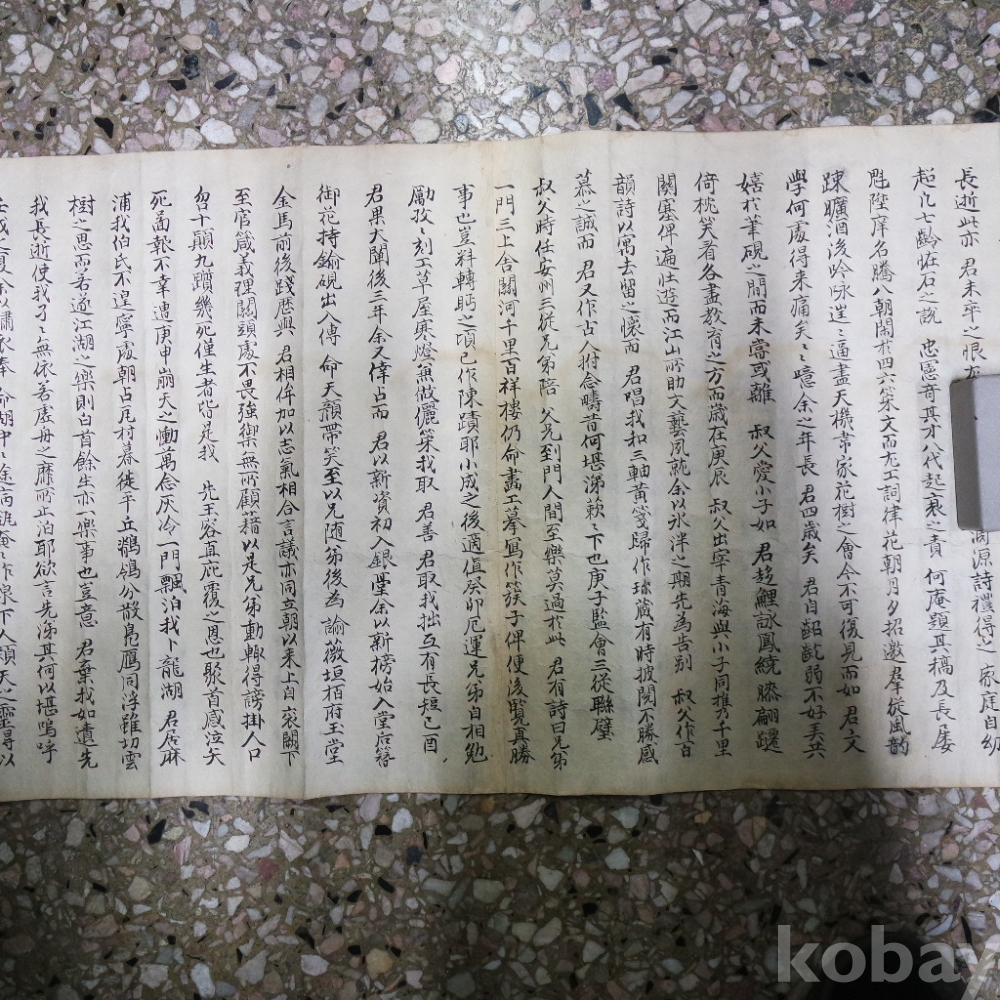 長逝此亦 君未卒之恨
商源詩禮得之 家庭自幼
超凡七齡恠石之說 忠憲奇其才八代起衰之責 何庵題其稿及長屢
陞庠名騰八朝閑於四六策文而尤工詞律花朝月夕招邀群從風韵
踈曠酒後吟咏逼盡天機韋家花樹之會今不可復見而如 君之文
學何處得來痛矣々噫余之年長 君四歲矣 君自齠齔弱不好弄共
嬉於筆硯之間而未嘗或離 叔父愛小子如 君趍鯉詠鳳繞膝翩躚
倚桃笑看各盡教育之方而歲在庚辰 叔父出宰青海與小子同携乃千里
關塞俾遍壯遊而江山所助文藝夙就余以氷泮之期先為告別 叔父作百
韻詩以寓去留之懷而 君唱我和三軸黃箋歸作 藏有時披閱不勝感
慕之誠而 君又作古人拊念疇昔何堪涕簌々下也庚子監會三從聯璧
叔父時任安州三從兄弟陪 父兄到門人間至樂莫過於此 君有詩曰兄弟
一門三上舍關河千里百祥樓仍命畫工摹寫作簇子俾便後覽真勝
事也豈料轉眄之頃已作陳蹟耶小成之後適值癸卯厄運兄弟自相勉
勵孜々刻工草屋寒燈無做儷策我取 君善 君取我拙互有長短己酉
君果大闡後三年余又倖占而 君以新資初入銀臺余以新榜始入堂后簪
御花持鍮硯出入傳 命天顏帶笑至以兄隨弟後為諭微垣栢府玉堂
金馬前後踐歷與 君相伴加以志氣相合言議亦同立朝以来上自袞闕下
至官箴義理關頭處不畏強禦無所顧藉以是兄弟動輒得謗掛人口
吻十顛九躓幾死僅生者皆是我 先王容直庇覆之恩也聚首感泣矢
死啚報不幸遭庚申崩天之慟萬念灰冷一門飄泊我卜龍湖 君居麻
浦我伯氏不遑寧處朝占卮村暮徙平丘鶺鴒分散鳧鴈同浮雖切雲
樹之思而若遂江湖之樂則白首餘生亦一樂事也豈意 君棄我如遺先
我長逝使我孑々無依若虛舟之靡所止泊耶欲言先涕其何以堪嗚呼